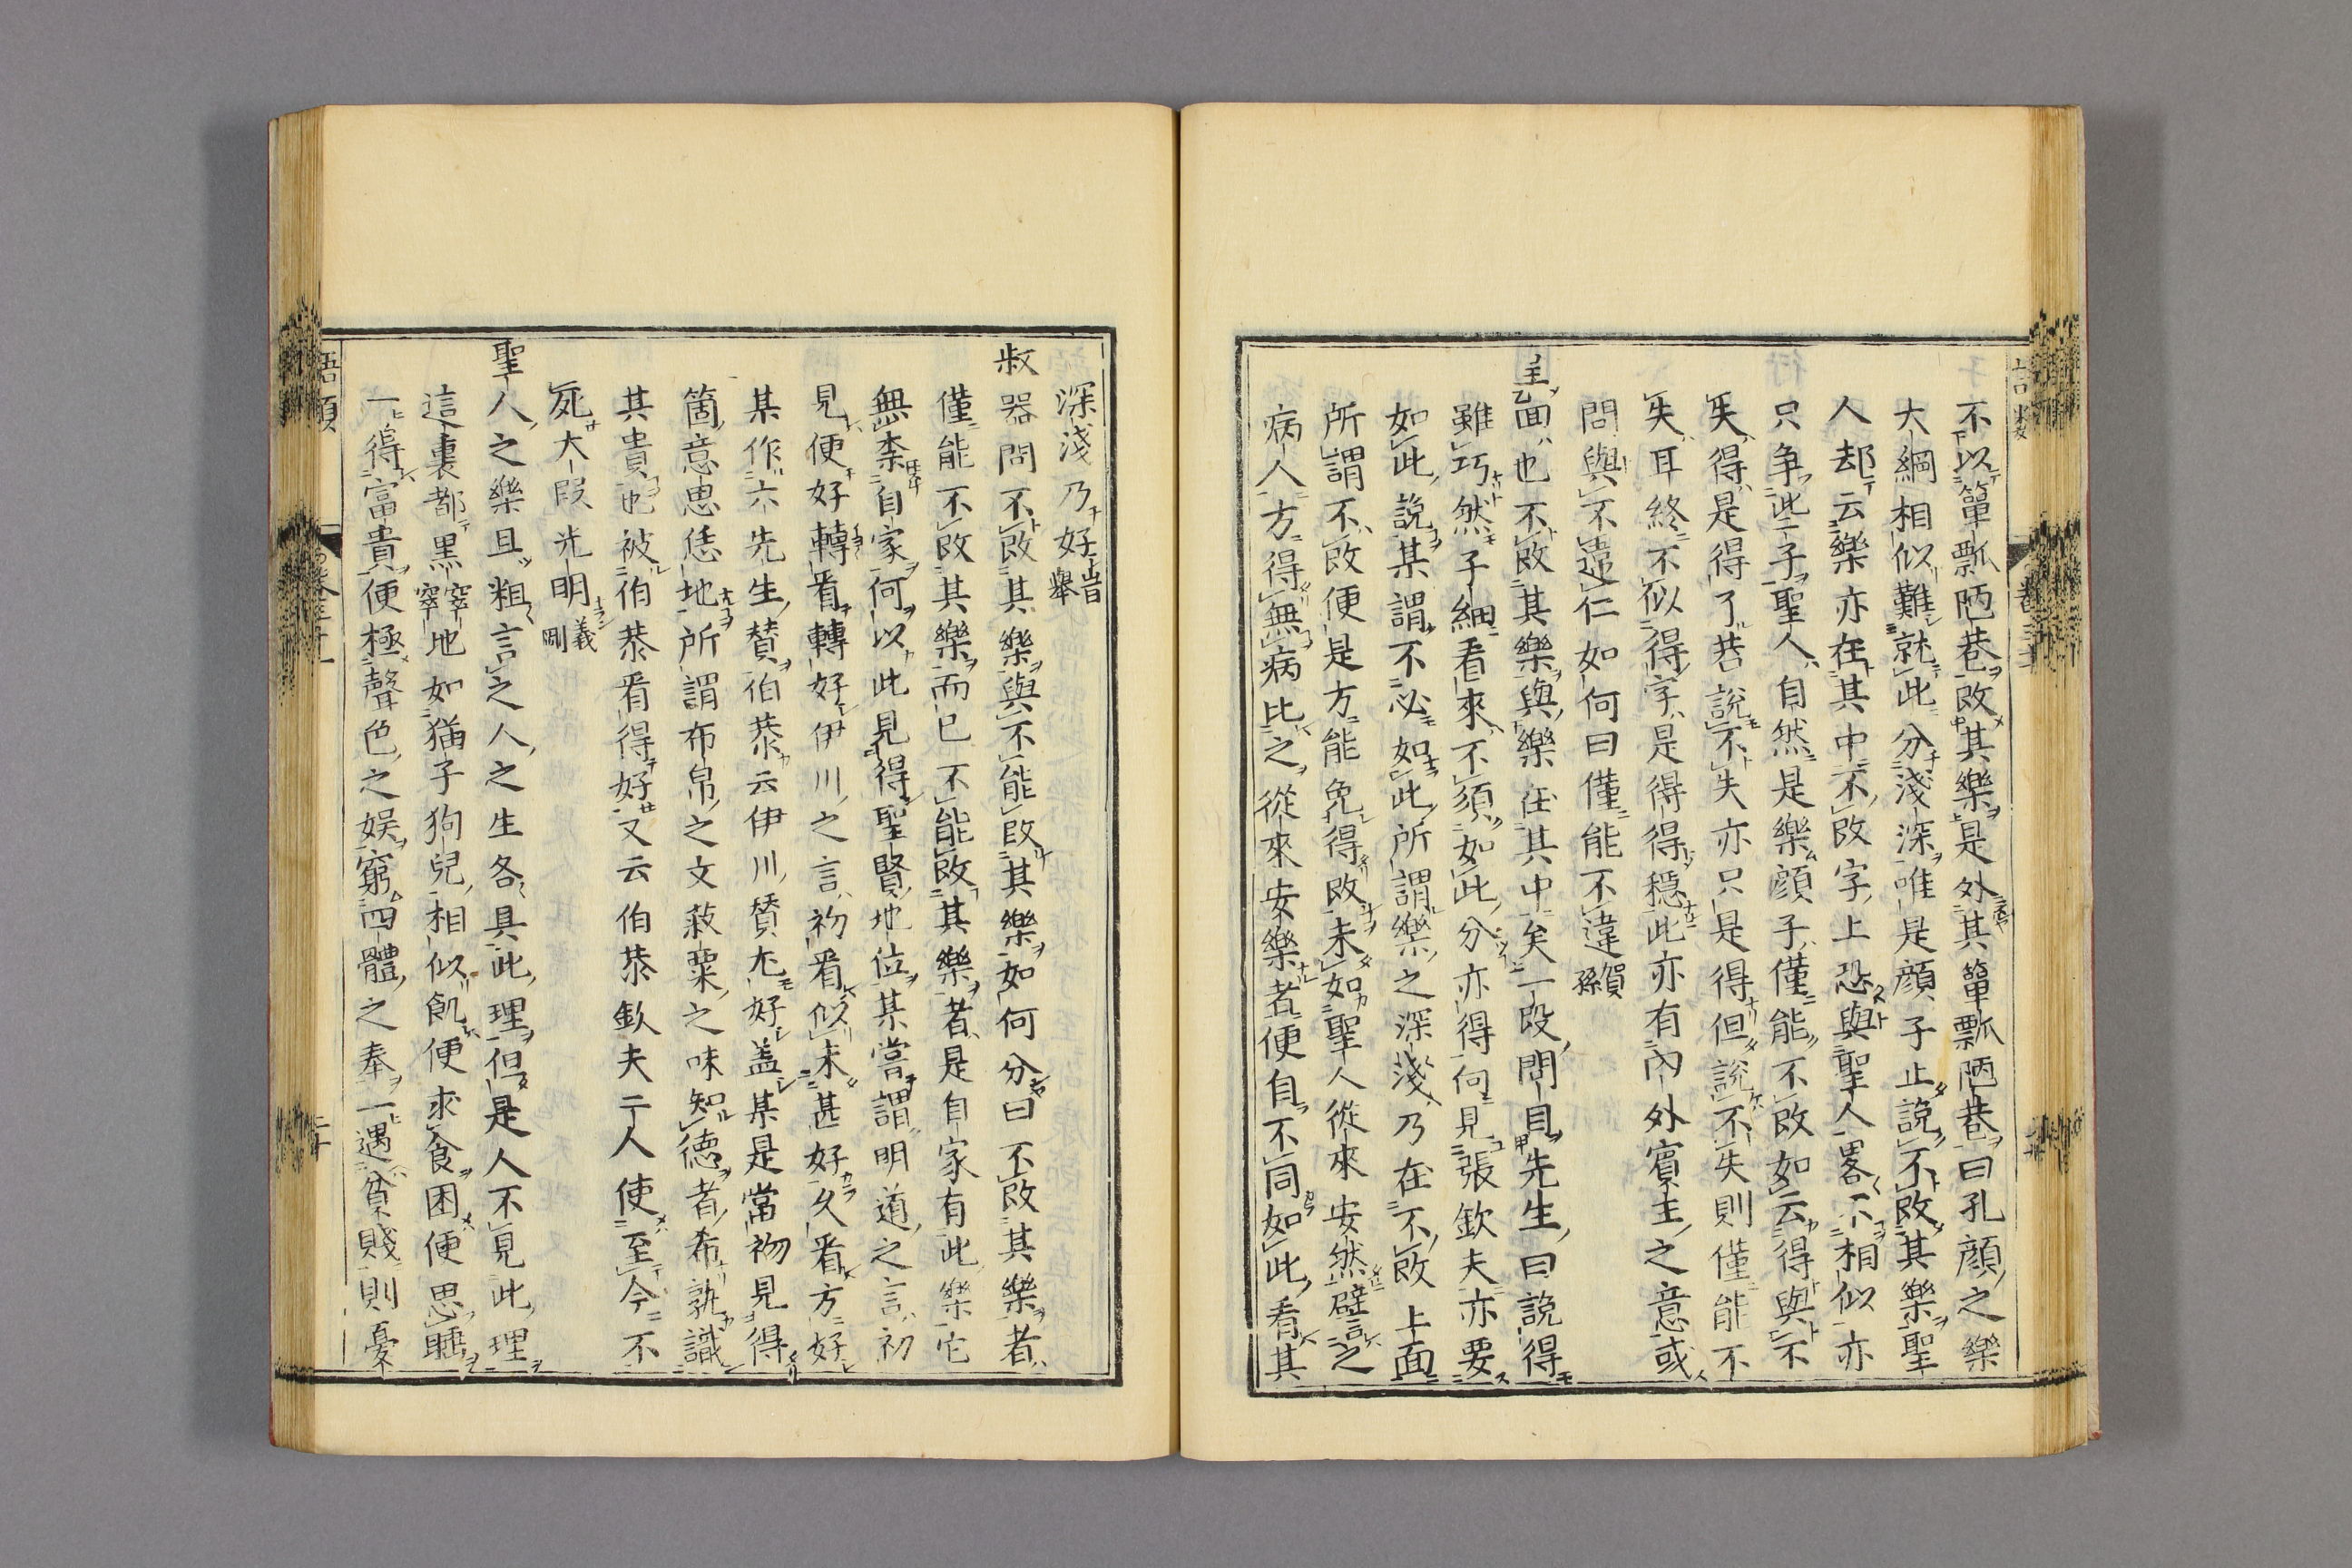 不以簞瓢陋巷改其樂是外其簞瓢陋巷曰孔顔之樂
大綱相似難就此分淺深唯是顔子止說不改其樂聖
人却云樂亦在其中不改字上恐與聖人畧不相似亦
只争此二子聖人自然是樂顔子僅能不改如云得與不
失得是得了若說不失亦只是得但說不失則僅能不
失耳終不似得字是得得穩此亦有內外賓主之意或
問與不違仁如何曰僅能不違賀孫
呈面也不改其樂與樂在其中矣二段問目先生曰說得
雖巧然子細看來不須如此分亦得向見張欽夫亦要
如此說某謂不必如此所謂樂之深淺乃在不改上面
所謂不改便是方能免得改未如聖人從來安然譬之
病人方得無病比之從來安樂者便自不同如此看其
深淺乃好時舉
叔器問不改其樂與不能改其樂如何分曰不改其樂者
僅能不改其樂而已不能改其樂者是自家有此樂它
無柰自家何以此見得聖賢地位某嘗謂明道之言初
見便好轉看轉好伊川之言初看似未甚好久看方好
某作六先生賛伯恭云伊川賛尤好盖某是當初見得
箇意思恁地所謂布帛之文菽粟之味知德者希孰識
其貴也被伯恭看得好又云伯恭欽夫二人使至今不
死大段光明義剛
聖人之樂且粗言之人之生各具此理但是人不見此理
這裏都黑窣窣地如猫子狗兒相似飢便求食困便思睡
一得富貴便極聲色之娱窮四體之奉一遇貧賤則憂
語類